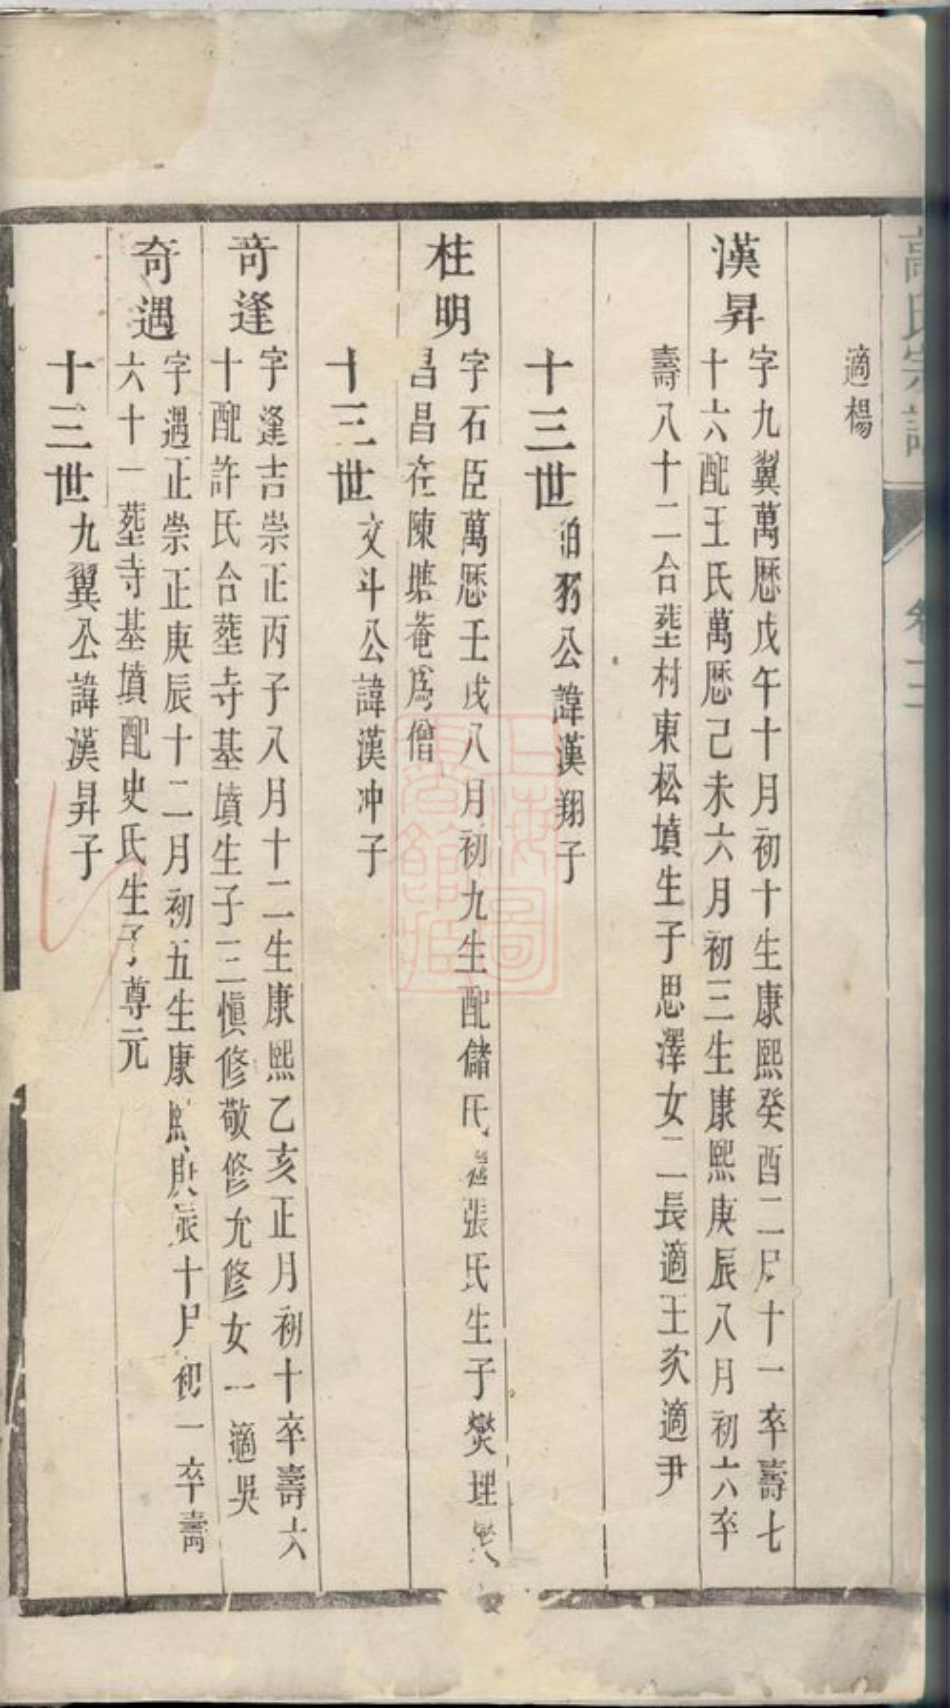 氏宗譜 卷二
適楊
漢昇
字九翼萬歷戊午十月初十生康熙癸酉二月十一卒壽七
十六配王氏萬歷己未六月初三生康熙庚辰八月初六卒
壽八十二合塟村東松墳生子思澤女二長適王次適尹
十三世 公諱漢翔子
柱明
字石臣萬歷壬戌八月初九生配儲氏 張氏生子燮理
昌昌在陳塘菴爲僧
十三世 文斗公諱漢冲子
奇逢
字逢吉崇正丙子八月十二生康熙乙亥正月初十卒壽六
十配許氏合塟寺基墳生子三愼修敬修允修女一適吳
奇遇
字遇正崇正庚辰十二月初五生康熙庚辰十月初一卒壽
六十一塟寺基墳配史氏生子尊元
十三世 九翼公諱漢昇子